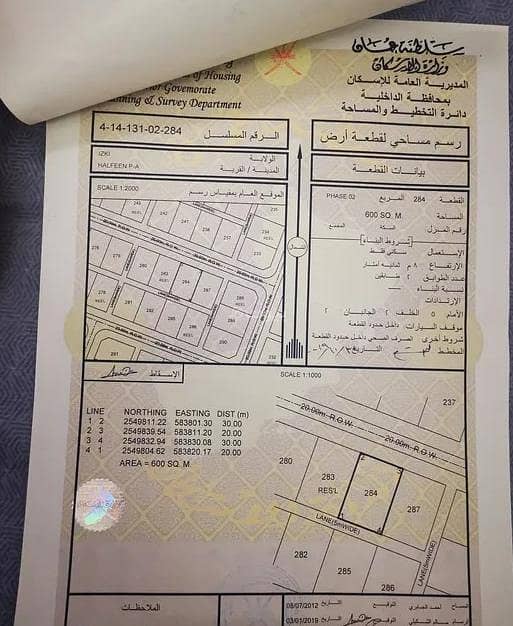 سلطنة عمان
وزارة الإسكان
المديرية العامة للإسكان
بمحافظة الداخلية
دائرة التخطيط والمساحة
of Housing
or Governorate
Planning & Survey Department
رسم مساحي لقطعة أرض
الرقم المسلسل
4-14-131-02-284
بيانات القطعة
الولاية
IZKI
المدينة / القرية
HALFEEN P-A
القطعة 284 المربع PHASE 02
المساحة 600 SQ. M.
رقم المنزل السكة المجمع
[شروط البناء]
الإستعمال سكني فقط
الإرتفاع ٨ م ثمانية أمتار
عدد الطوابق ٢
نسبة البناء
الإرتدادات
الأمام ٥ الخلف ٢ الجانبان ٢
موقف السيارات داخل حدود القطعة
شروط أخرى الصرف الصحي داخل حدود القطعة
المخطط التاريخ
الموقع العام بمقياس رسم
SCALE 1:2000
شمال
235
237
234
241
279
280
283
284
287
282
285
286
288
290
281
232
الإسقاط
SCALE 1:1000
LINE NORTHING EASTING DIST (m)
1 2 2549811.22 583801.30 30.00
2 3 2549839.54 583811.20 20.00
3 4 2549832.94 583830.08 30.00
4 1 2549804.62 583820.17 20.00
AREA = 600 SQ. M.
237
20.00m R.O.W.
20.00m R.O.W.
280
283
RES'L
284
287
LANE(5mWIDE)
LANE(5mWIDE)
282
285
286
الملاحظات
المساح أحمد الصابري التوقيع التاريخ 08/07/2012
التوقيع التاريخ 03/01/2019